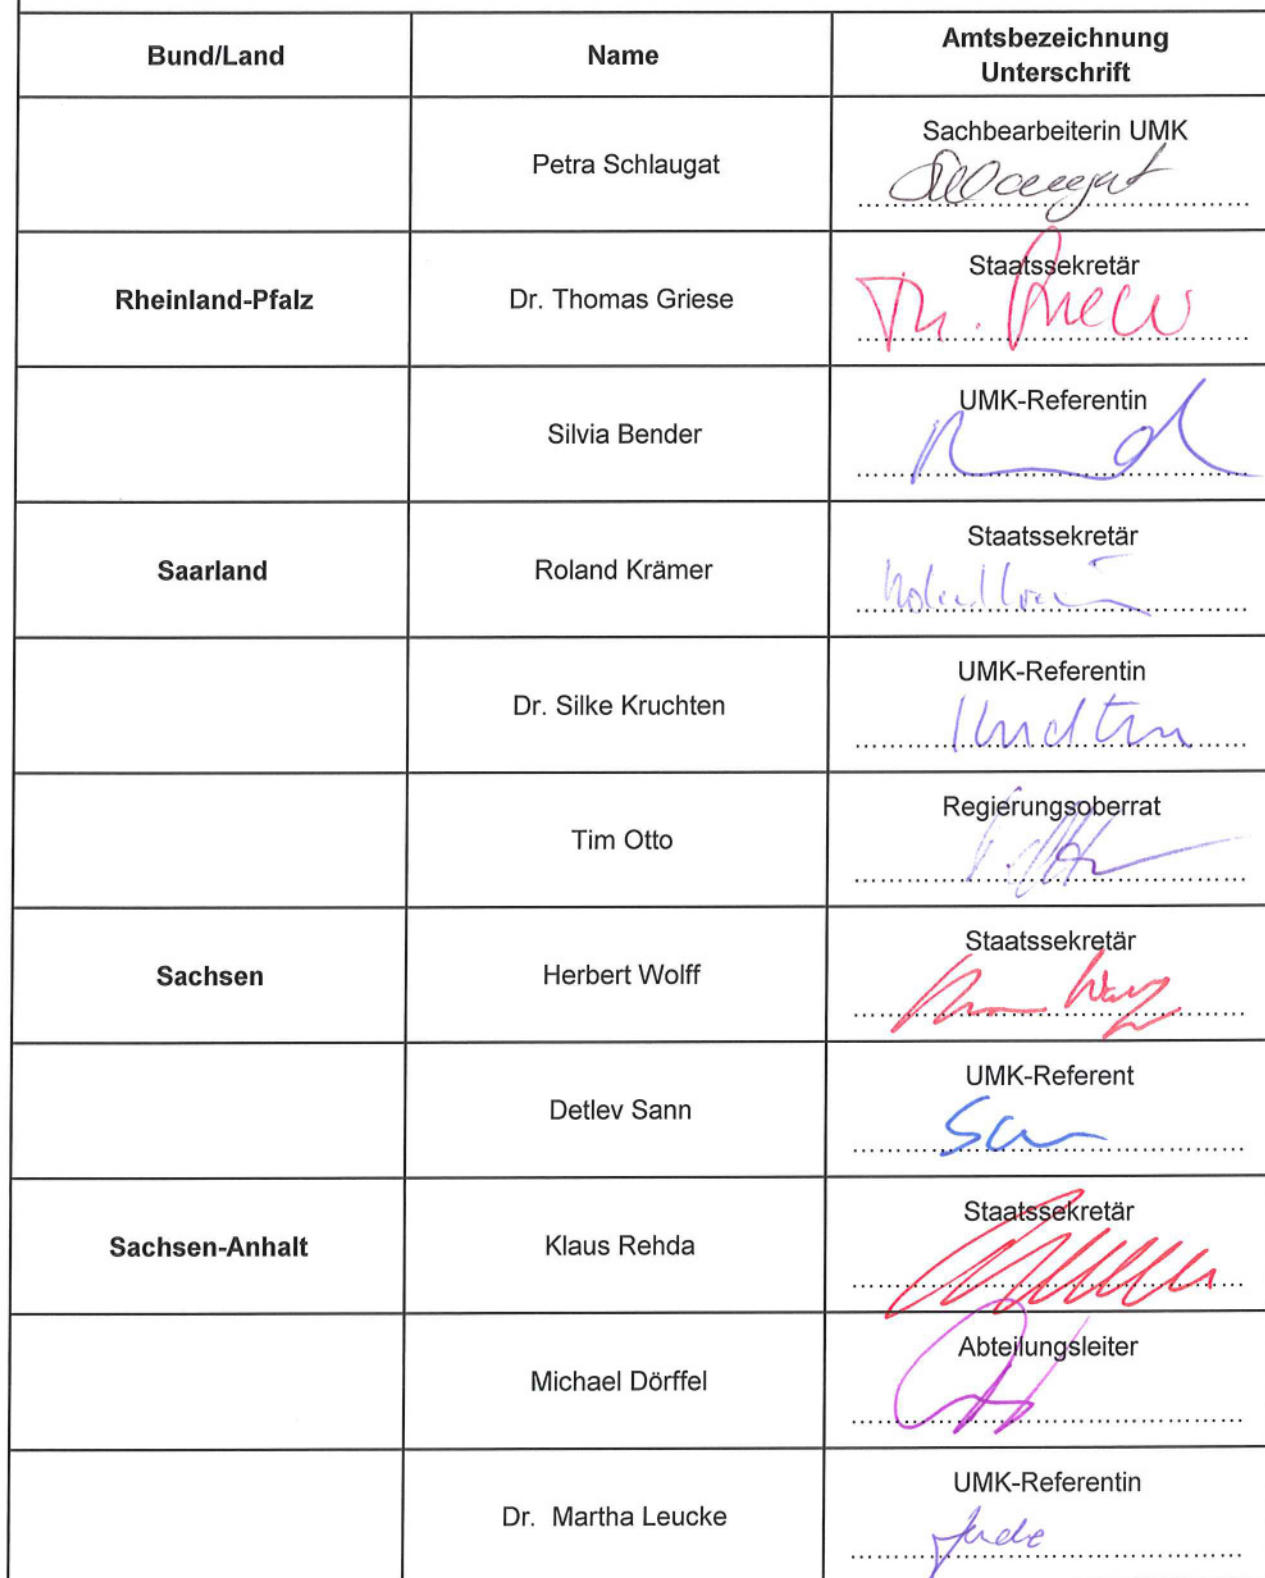 Bund/Land Name Amtsbezeichnung
Unterschrift
Petra Schlaugat Sachbearbeiterin UMK
Rheinland-Pfalz Dr. Thomas Griese Staatssekretär
Silvia Bender UMK-Referentin
Saarland Roland Krämer Staatssekretär
Dr. Silke Kruchten UMK-Referentin
Tim Otto Regierungsoberrat
Sachsen Herbert Wolff Staatssekretär
Detlev Sann UMK-Referent
Sachsen-Anhalt Klaus Rehda Staatssekretär
Michael Dörffel Abteilungsleiter
Dr. Martha Leucke UMK-Referentin